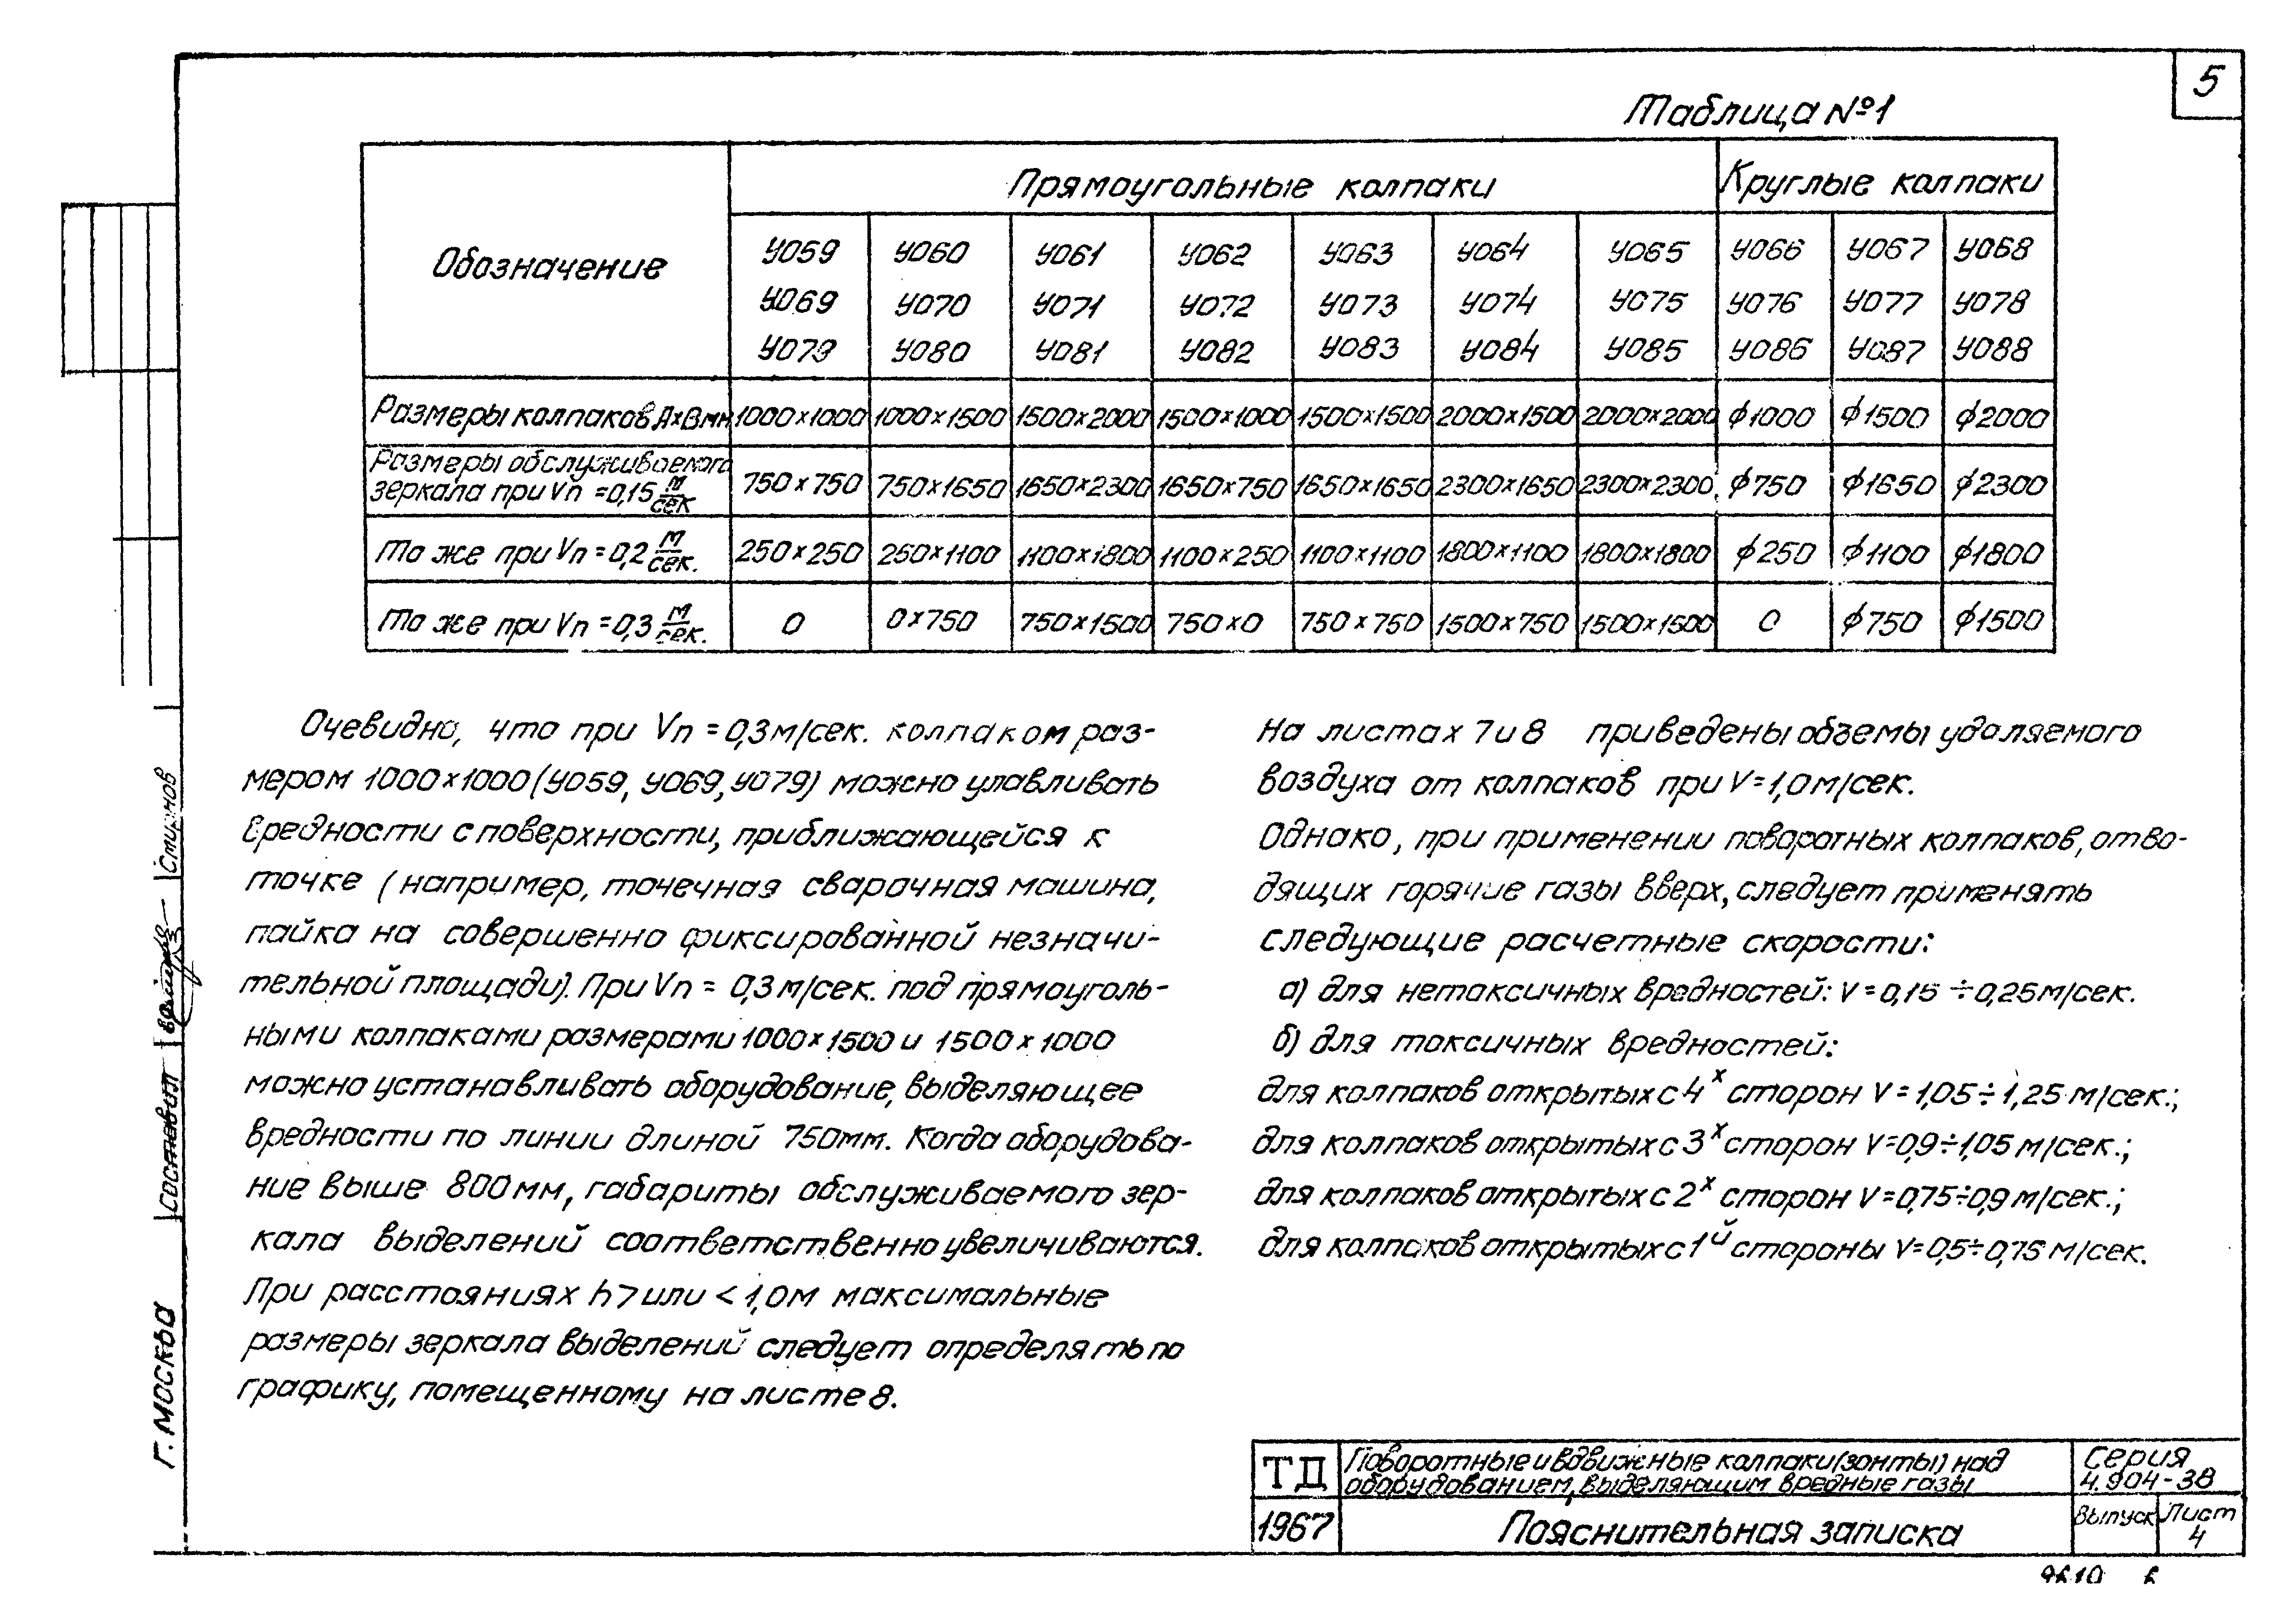 5
Таблица №1
Обозначение
Прямоугольные колпаки
Круглые колпаки
У059 У060 У061 У062 У063 У064 У065 У066 У067 У068
У069 У070 У071 У072 У073 У074 У075 У076 У077 У078
У079 У080 У081 У082 У083 У084 У085 У086 У087 У088
Размеры колпаков А×В мм 1000×1000 1000×1500 1500×2000 1500×1000 1500×1500 2000×1500 2000×2000 ϕ1000 ϕ1500 ϕ2000
Размеры обслуживаемого
зеркала при Vп =0,15 м/сек 750×750 750×1650 1650×2300 1650×750 1650×1650 2300×1650 2300×2300 ϕ750 ϕ1650 ϕ2300
То же при Vп =0,2 м/сек. 250×250 250×1100 1100×1800 1100×250 1100×1100 1800×1100 1800×1800 ϕ250 ϕ1100 ϕ1800
То же при Vп =0,3 м/сек. 0 0×750 750×1500 750×0 750×750 1500×750 1500×1500 0 ϕ750 ϕ1500
Очевидно, что при Vп = 0,3 м/сек. колпаком раз-
мером 1000×1000 (У059, У069, У079) можно улавливать
вредности с поверхности, приближающейся к
точке (например, точечная сварочная машина,
пайка на совершенно фиксированной незначи-
тельной площади). При Vп = 0,3 м/сек. под прямоуголь-
ными колпаками размерами 1000×1500 и 1500×1000
можно устанавливать оборудование, выделяющее
вредности по линии длиной 750мм. Когда оборудова-
ние выше 800мм, габариты обслуживаемого зер-
кала выделений соответственно увеличиваются.
При расстояниях h > или < 1,0м максимальные
размеры зеркала выделений следует определять по
графику, помещенному на листе 8.
На листах 7 и 8 приведены объемы удаляемого
воздуха от колпаков при V=1,0 м/сек.
Однако, при применении поворотных колпаков, отво-
дящих горячие газы вверх, следует применять
следующие расчетные скорости:
а) для нетоксичных вредностей: V = 0,15 ÷ 0,25м/сек.
б) для токсичных вредностей:
для колпаков открытых с 4х сторон V = 1,05÷1,25 м/сек.;
для колпаков открытых с 3х сторон V=0,9÷1,05 м/сек.;
для колпаков открытых с 2х сторон V=0,75÷0,9 м/сек.;
для колпаков открытых с 1й стороны V=0,5÷0,75 м/сек.
г. Москва
составил
Смирнов
ТД
Поворотные и вдвижные колпаки (зонты) над
оборудованием, выделяющим вредные газы
Серия
4.904-38
1967
Пояснительная записка
Выпуск
Лист
4
9610 6